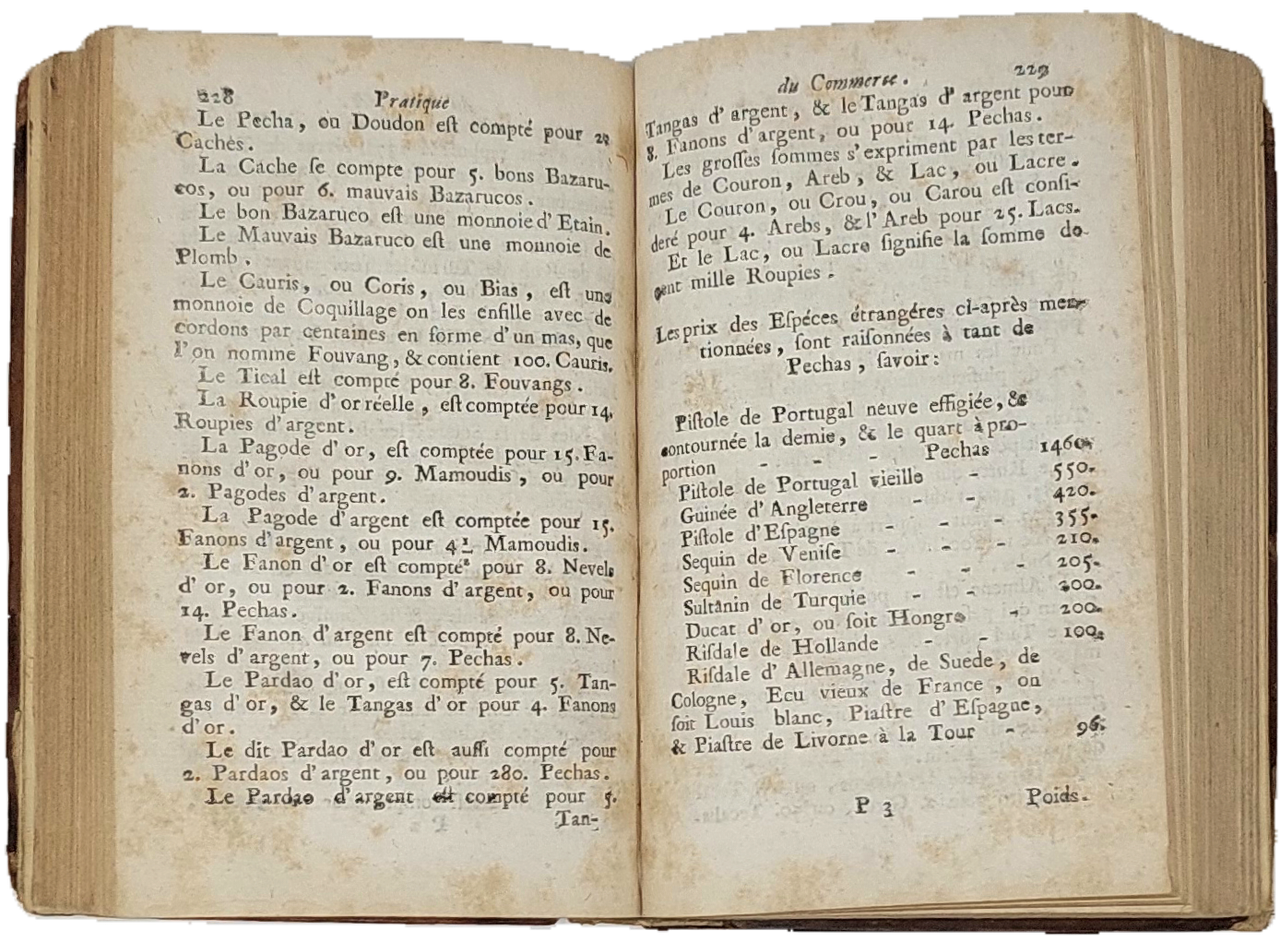 228 Pratique
Le Pecha, ou Doudon est compté pour
Caches.
La Cache se compte pour 5. bons Bazaru-
cos, ou pour 6. mauvais Bazarucos.
Le bon Bazaruco est une monnoie d'Etain.
Le Mauvais Bazaruco est une monnoie de
Plomb.
Le Cauris, ou Coris, ou Bias, est une
monnoie de Coquillage on les enfille avec de
cordons par centaines en forme d'un mas, que
l'on nomme Fouvang, & contient 100. Cauris.
Le Tical est compté pour 8. Fouvangs.
La Roupie d'or réelle, est comptée pour 14.
Roupies d'argent.
La Pagode d'or, est comptée pour 15. Fa-
nons d'or, ou pour 9. Mamoudis, ou pour
2. Pagodes d'argent.
La Pagode d'argent est comptée pour 15.
Fanons d'argent, ou pour 4 1/2 Mamoudis.
Le Fanon d'or est compté pour 8. Nevels
d'or, ou pour 2. Fanons d'argent, ou pour
14. Pechas.
Le Fanon d'argent est compté pour 8. Ne-
vels d'argent, ou pour 7. Pechas.
Le Pardao d'or, est compté pour 5. Tan-
gas d'or, & le Tangas d'or pour 4. Fanons
d'or.
Le dit Pardao d'or est aussi compté pour
2. Pardaos d'argent, ou pour 280. Pechas.
Le Pardao d'argent est compté pour 5.
Tan-
du Commerse. 229
Tangas d'argent, & le Tangas d'argent pour
8. Fanons d'argent, ou pour 14. Pechas.
Les grosses sommes s'expriment par les ter-
mes de Couron, Areb, & Lac, ou Lacre.
Le Couron, ou Crou, ou Carou est consi-
deré pour 4. Arebs, & l'Areb pour 25. Lacs.
Et le Lac, ou Lacre signifie la somme de
cent mille Roupies.
Les prix des Espéces étrangéres ci-après men-
tionnées, sont raisonnées à tant de
Pechas, savoir:
Pistole de Portugal neuve effigiée, &
contournée la demie, & le quart à pro-
portion - - - Pechas 1460.
Pistole de Portugal vieille - 550.
Guinée d'Angleterre - - 420.
Pistole d'Espagne - - - 355.
Sequin de Venise - - - 210.
Sequin de Florence - - - 205.
Sultanin de Turquie - - 200.
Ducat d'or, ou soit Hongre - 200.
Risdale de Hollande - - 100.
Risdale d'Allemagne, de Suede, de
Cologne, Ecu vieux de France, ou
soit Louis blanc, Piastre d'Espagne,
& Piastre de Livorne à la Tour - 96.
P 3 Poids.